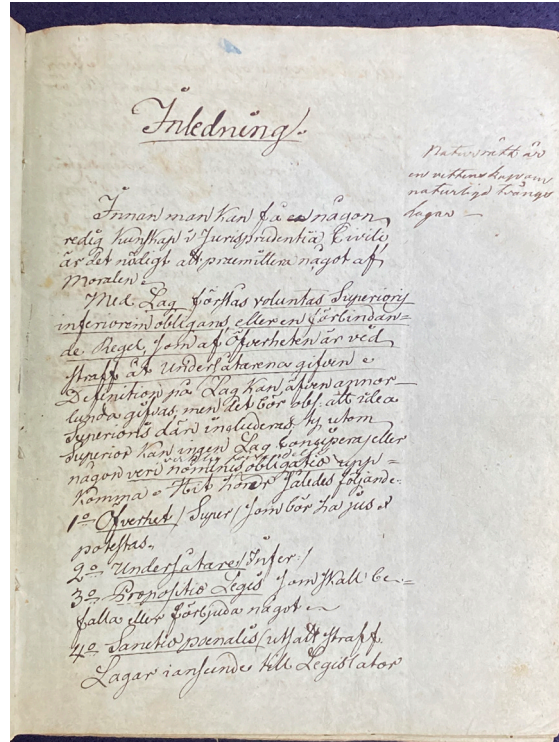 Inledning.
Naturrätt är
en vettenskap om
naturlige tvångs
lagar –
Innan man kan få en någon
redig kunskap i Jurisprudentia Civili
är det nödigt att præmittera något af
Moralen.
Med Lag förstås voluntas Superioris
inferiorem obligans eller en förbindan=
de Regel, som af Öfverheten är ved
straff åt undersåtarena gifven.
Definition på Lag kan äfven annor-
lunda gifvas, men det bör obs. att idea
Superioris där includeras, ty utom
Superior kan ingen Lag concipera, eller
någon veri nominis obligatio upp=
komma. Hit hörer således följande:
1o Öfverhet / Super / som bör ha jus &
potestas.
2o Undersåtare / Infer: /
3o Propositio Legis som skall be=
falla eller förbjuda något
4o Sanctio poenalis / utsatt straff.
Lagar i anseende till Legislator